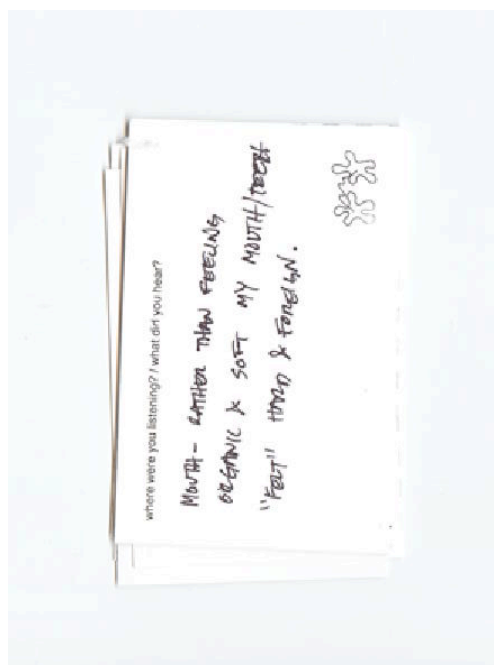 where were you listening? / what did you hear?
MOUTH - RATHER THAN FEELING
ORGANIC & SOFT MY MOUTH/TEETH
"FELT" HARD & FOREIGN.